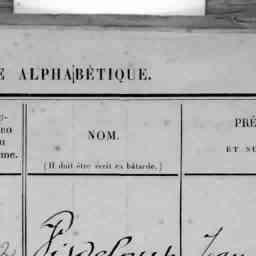 E ALPHABÉTIQUE.
RO
u
me.
NOM.
(Il doit être écrit en bâtarde.)
PRÉ
ET SU
Pisdeloup Jean